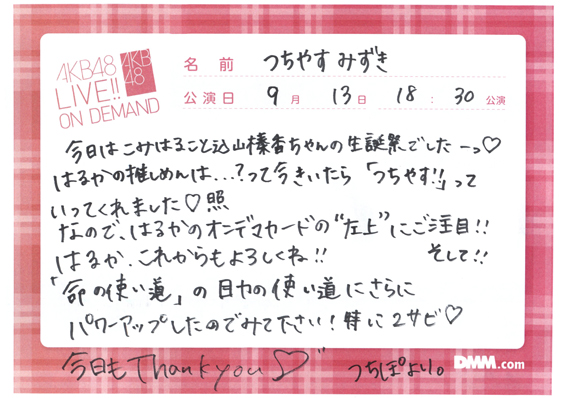 AKB48
LIVE!!
ON DEMAND
AKB
48
名前 つちやす みずき
公演日 9月 13日 18:30公演
今日はこみはること込山榛香ちゃんの生誕祭でしたーっ♡
はるかの推しめんは...?って今きいたら「つちやす!!」って
いってくれました♡照
なので、はるかのオンデマカードの"左上"にご注目!!
はるか、これからもよろしくね!! そして!!
「命の使い道」の目力の使い道にさらに
パワーアップしたのでみて下さい!特に2サビ♡
今日もThank you♡
つちぽより。
DMM.com